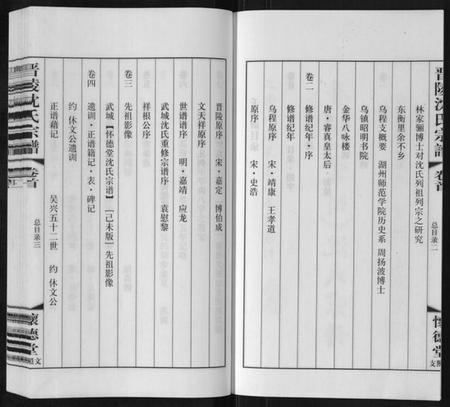 晋陵沈氏宗譜 卷首 總目录二 懷德堂
林家骊博士对沈氏列祖列宗之研究
东衡里余不乡
乌程支概要 湖州师范学院历史系 周扬波博士
乌镇昭明书院
金华八咏楼
唐·睿真皇太后
卷二 修谱纪年·序
修谱纪年
乌程原序 宋·靖康 王孝道
原序 宋·史浩
晋陵原序 宋·嘉定 博伯成
文天祥原序
世谱谱序 明·嘉靖 应龙
武城沈氏重修宗谱序 袁慰黎
祥根公序
卷三 先祖影像
武城【怀德堂沈氏宗谱】【己未版】先祖影像
卷四 遗训·正谱籍记·表·碑记
约 休文公遗训
正谱籍记 吴兴五十二世 约 休文公
晋陵沈氏宗譜 卷首 总目录三 懷德堂